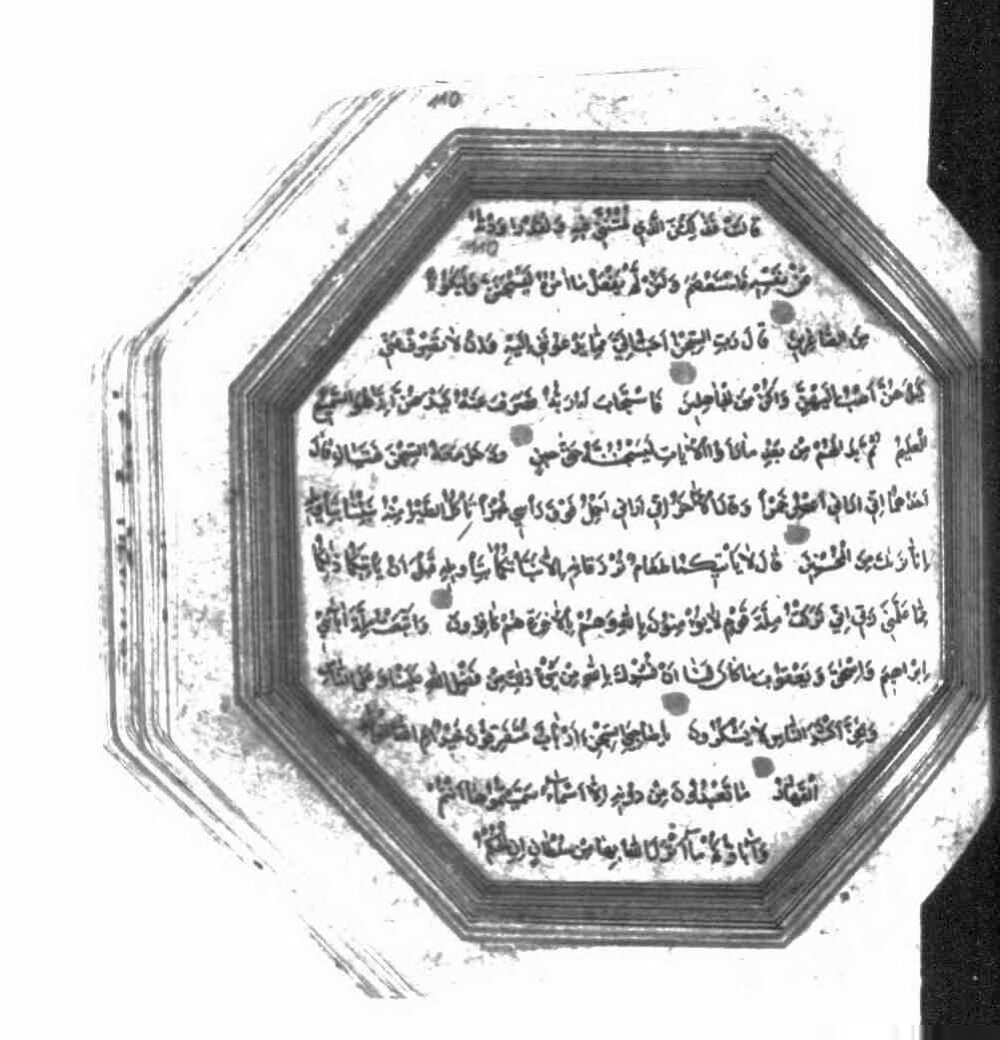 110
قَالَتْ فَذٰلِكُنَّ الَّذِي لُمْتُنَّنِي فِيهِ وَلَقَدْ رَاوَدْتُهُ
110
عَنْ نَفْسِهِ فَاسْتَعْصَمَ وَلَئِنْ لَمْ يَفْعَلْ مَا اٰمُرُهُ لَيُسْجَنَنَّ وَلَيَكُونًا
مِنَ الصَّاغِرِينَ قَالَ رَبِّ السِّجْنُ اَحَبُّ اِلَيَّ مِمَّا يَدْعُونَنِي اِلَيْهِ وَاِلَّا تَصْرِفْ عَنِّي
كَيْدَهُنَّ اَصْبُ اِلَيْهِنَّ وَاَكُنْ مِنَ الْجَاهِلِينَ فَاسْتَجَابَ لَهُ رَبُّهُ فَصَرَفَ عَنْهُ كَيْدَهُنَّ اِنَّهُ هُوَ السَّمِيعُ
الْعَلِيمُ ثُمَّ بَدَا لَهُمْ مِنْ بَعْدِ مَا رَاَوُا الْاٰيَاتِ لَيَسْجُنُنَّهُ حَتّٰى حِينٍ وَدَخَلَ مَعَهُ السِّجْنَ فَتَيَانِ قَالَ
اَحَدُهُمَا اِنِّي اَرَانِي اَعْصِرُ خَمْرًا وَقَالَ الْاٰخَرُ اِنِّي اَرَانِي اَحْمِلُ فَوْقَ رَاْسِي خُبْزًا تَاْكُلُ الطَّيْرُ مِنْهُ نَبِّئْنَا بِتَاْوِيلِهِ
اِنَّا نَرٰيكَ مِنَ الْمُحْسِنِينَ قَالَ لَا يَاْتِيكُمَا طَعَامٌ تُرْزَقَانِهِ اِلَّا نَبَّاْتُكُمَا بِتَاْوِيلِهِ قَبْلَ اَنْ يَاْتِيَكُمَا ذٰلِكُمَا
مِمَّا عَلَّمَنِي رَبِّي اِنِّي تَرَكْتُ مِلَّةَ قَوْمٍ لَا يُؤْمِنُونَ بِاللّٰهِ وَهُمْ بِالْاٰخِرَةِ هُمْ كَافِرُونَ وَاتَّبَعْتُ مِلَّةَ اٰبَائِي
اِبْرَاهِيمَ وَاِسْحٰقَ وَيَعْقُوبَ مَا كَانَ لَنَا اَنْ نُشْرِكَ بِاللّٰهِ مِنْ شَيْءٍ ذٰلِكَ مِنْ فَضْلِ اللّٰهِ عَلَيْنَا وَعَلَى النَّاسِ
وَلٰكِنَّ اَكْثَرَ النَّاسِ لَا يَشْكُرُونَ يَا صَاحِبَيِ السِّجْنِ ءَاَرْبَابٌ مُتَفَرِّقُونَ خَيْرٌ اَمِ اللّٰهُ الْوَاحِدُ
الْقَهَّارُ مَا تَعْبُدُونَ مِنْ دُونِهِ اِلَّا اَسْمَاءً سَمَّيْتُمُوهَا اَنْتُمْ
وَاٰبَاؤُكُمْ مَا اَنْزَلَ اللّٰهُ بِهَا مِنْ سُلْطَانٍ اِنِ الْحُكْمُ